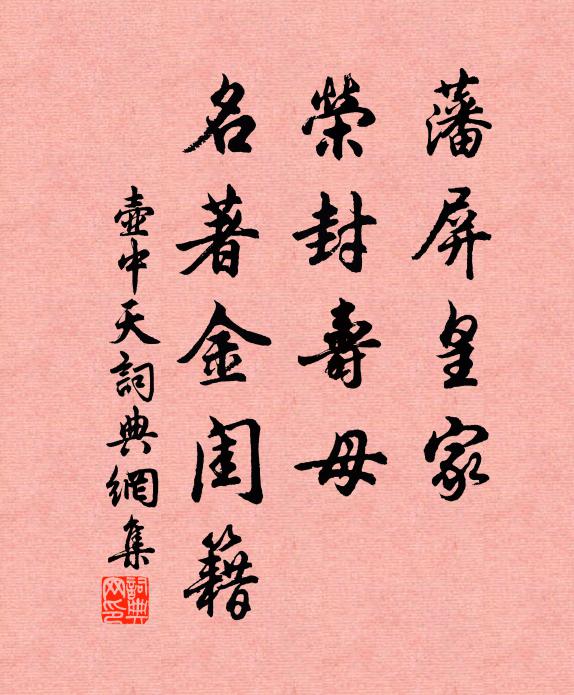 藩屏皇家
榮封壽母
名著金闺籍
壺中天詞典網集
詞典网印